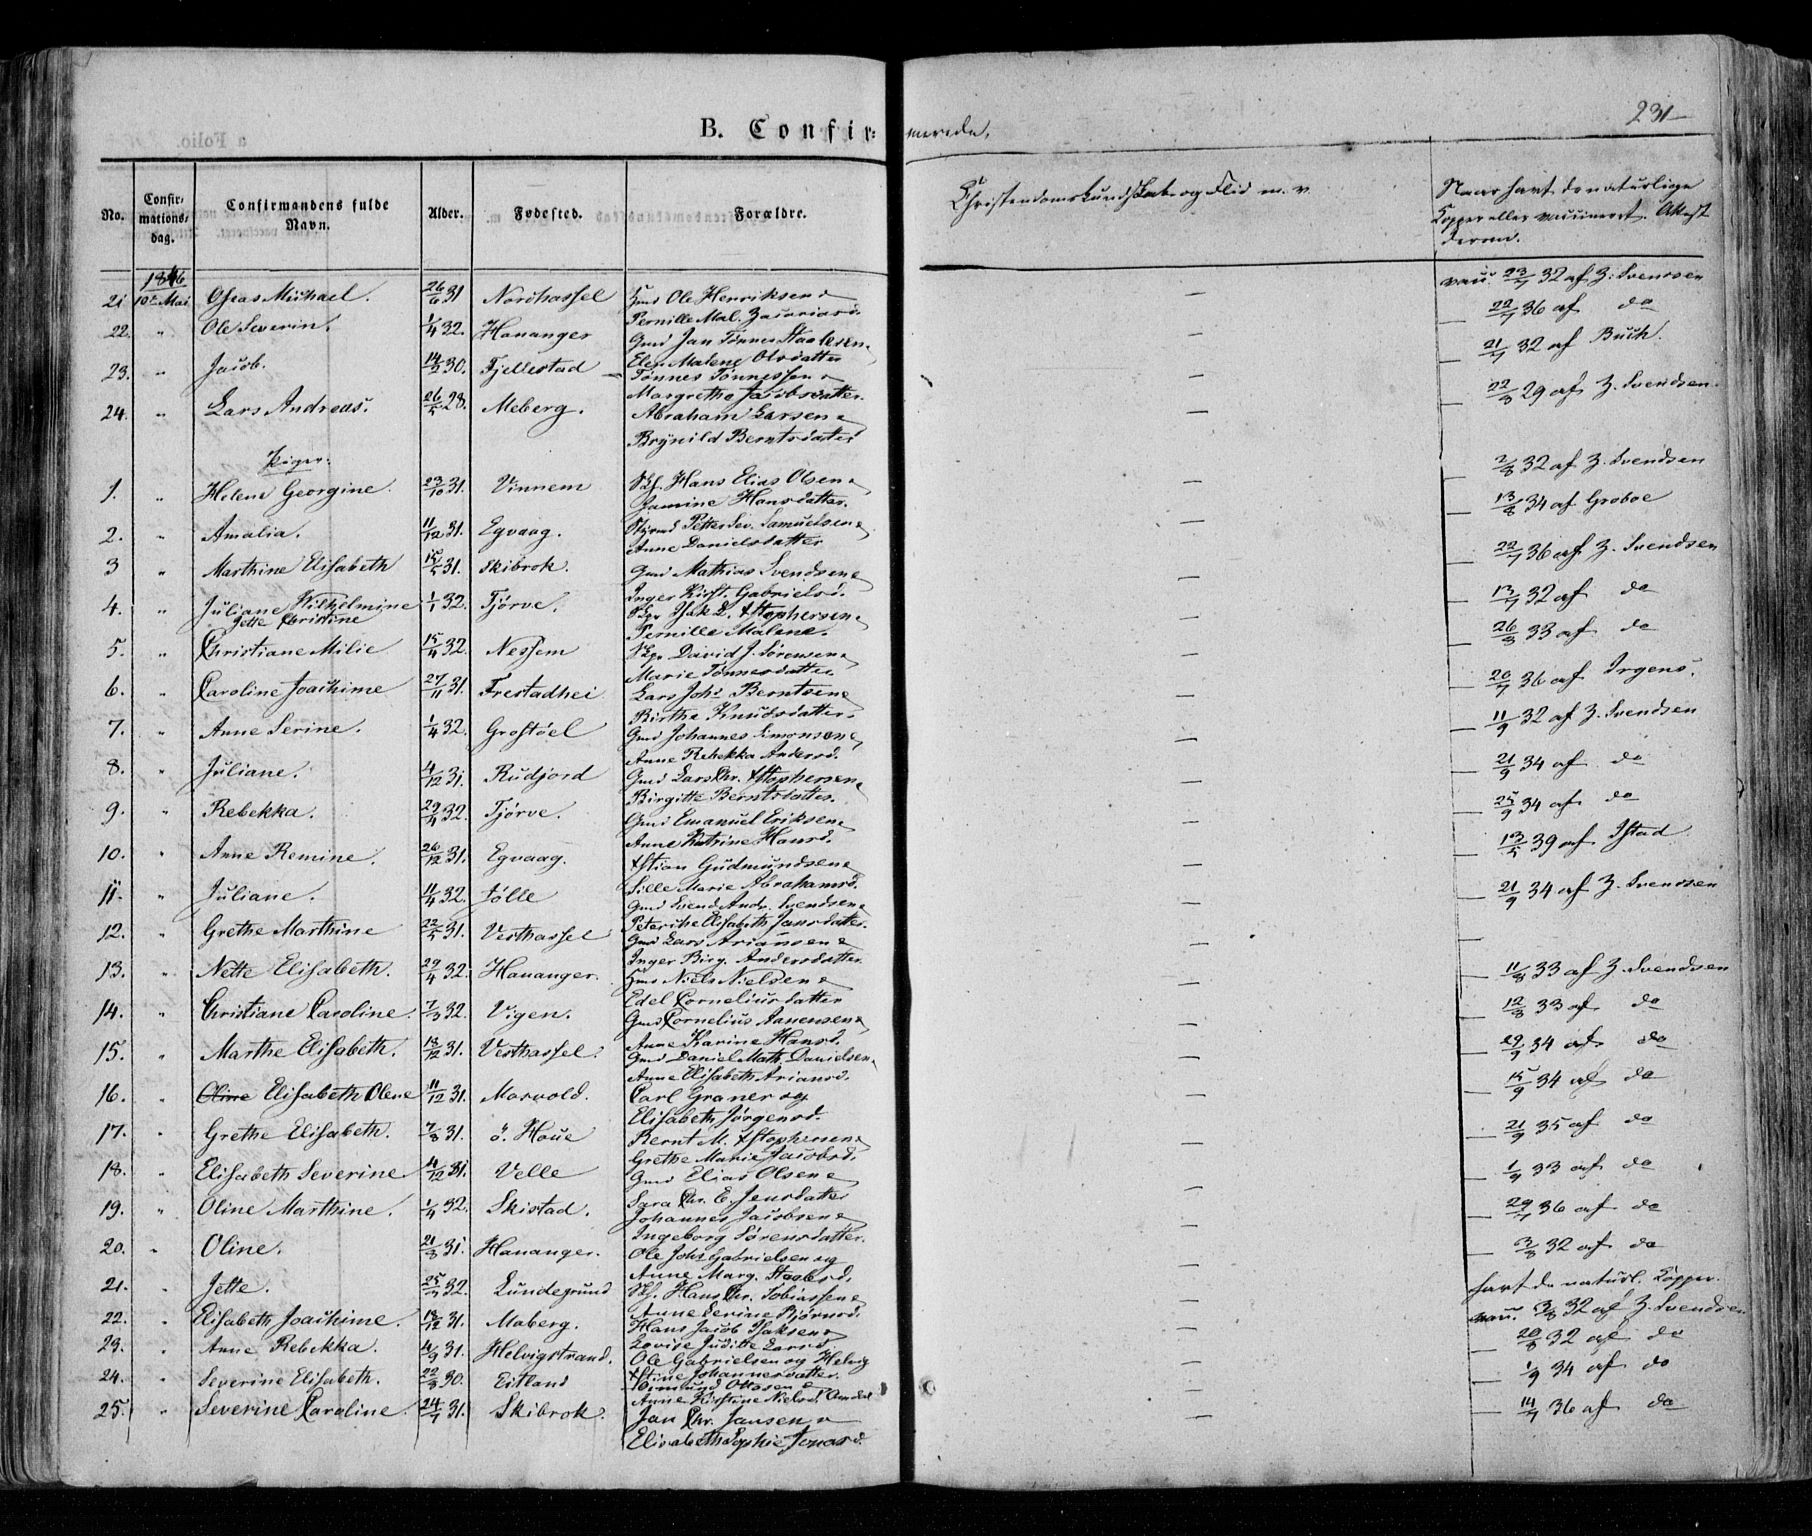 231
B. Confir-
merede.
No.
Confir-
mations-
dag.
Confirmandens fulde
Navn.
Alder.
Fødested.
Forældre.
Christendomskundskab og Flid m. v.
Naar havt de naturlige
Kopper eller vaccineret. Attest
derom.
1846
21 10de Mai Oseas Michael. 26/6 31 Nordhassel Gmd Ole Henriksen &
Pernille Mal. Zacariasd. — vacc. 23/7 32 af Z. Svendsen
22. " Ole Severin. 1/4 32. Hananger Gmd Jan Tønnes Staalesen &
Elen Malene Olsdatter — 22/7 36 af do
23. " Jacob. 14/2 30. Fjellestad Tønnes Tønnessen &
Margrethe Jacobsdatter. — 21/7 32 af Buch.
24. " Lars Andreas. 26/5 28. Meberg. Abraham Larsen &
Brynild Berntsdatter — 22/8 29 af Z. Svendsen
Piger.
1. " Helene Georgine. 23/10 31. Vinnem Skf. Hans Elias Olsen &
Jamine Hansdatter. — 2/8 32 af Z. Svendsen
2. " Amalia. 11/12 31. Egvaag. Styrmd Petter Sev. Samuelsen &
Anne Danielsdatter — 13/8 34 af Groboe
3 " Marthine Elisabeth 15/5 31. Skibrok. Gmd Mathias Svendsen &
Inger Kirst. Gabrielsd. — 22/7 36 af Z. Svendsen
4. " Juliane Wilhelmine
Jette Christine 1/1 32. Tjørve. Skpr Isak L. Xstophersen &
Pernille Malene. — 13/7 32 af do
5. " Christiane Milie 15/4 32. Nessem Skpr David J. Sørensen &
Marie Tønnesdatter — 26/3 33 af do
6. " Caroline Joachime 27/11 31. Frestadhei Lars Johs Berntsen &
Birthe Knudsdatter. — 20/7 36 af Irgens.
7. " Anne Serine. 1/4 32. Grostøel Gmd Johannes Simonsen &
Anne Rebekka Andersd. — 11/9 32 af Z. Svendsen
8. " Juliane. 4/12 31. Rudjord Gmd Lars Chr. Xstophersen &
Birgitte Berntsdatter. — 21/9 34 af do
9. " Rebekka. 29/4 32. Tjørve. Gmd Emanuel Eriksen &
Anne Katrine Hansd. — 25/9 34 af do
10. " Anne Remine. 26/12 31. Egvaag. Xstian Gudmundsen &
Sille Marie Abrahamsd. — 13/5 39 af Istad
11. " Juliane. 11/4 32. Jølle Gmd Svend Andr. Svendsen &
Peterike Elisabeth Jansdatter. — 21/9 34 af Z. Svendsen
12. " Grethe Marthine 22/5 31. Vesthassel Gmd Lars Ariansen &
Inger Birg. Andersdatter. —
13. " Nette Elisabeth. 29/4 32. Hananger. Hmd Niels Nielsen &
Edel Corneliusdatter — 11/8 33 af Z. Svendsen
14. " Christiane Caroline. 7/3 32. Vigen. Gmd Cornelius Aanensen &
Anne Karine Hansd. — 12/8 33 af do
15. " Marthe Elisabeth. 18/12 31. Vesthassel. Gmd Daniel Math. Danielsen &
Anne Elisabeth Ariansd. — 29/9 34 af do
16. " Oline Elisabeth Olene 11/12 31. Marvold. Carl Graner og
Elisabeth Jørgensd. — 15/9 34 af do
17. " Grethe Elisabeth. 7/3 31. ö. Houe Bernt M. Xstophersen &
Grethe Marie Jacobsd. — 21/9 35 af do
18. " Elisabeth Severine 4/12 31. Velle Gmd Elias Olsen &
Sara Chr. E. Jensdatter — 1/9 33 af do
19. " Oline Marthine. 1/4 32. Skistad. Johannes Jacobsen &
Ingeborg Sørensdatter. — 29/7 36 af do
20. " Oline. 21/3 31. Hananger. Ole Johs Gabrielsen og
Anne Marg. Staalesd. — 3/8 32 af do
21. " Jette. 25/2 32. Lundegrund Skf. Hans Chr. Tobiassen &
Anne Serine Bjørnsd. — havt de naturl. Kopper.
22. " Elisabeth Joachime. 13/12 31. Maberg. Hans Jacob Isaksen &
Lovise Judithe Larsd. — vacc. 3/8 32 af Z. Svendsen
23. " Anne Rebekka. 4/9 31. Helvigstrand. Ole Gabrielsen og Helvig
Xstine Johannesdatter. — 20/8 32 af do
24. " Severine Elisabeth. 22/3 30. Eitland Omund Ottosen &
Anne Kirstine Nielsd. Omdal — 1/9 34 af do
25. " Severine Caroline. 24/7 31. Skibrok. Jan Chr. Jansen &
Elisabeth Sophie Jonasd. — 14/7 36 af do